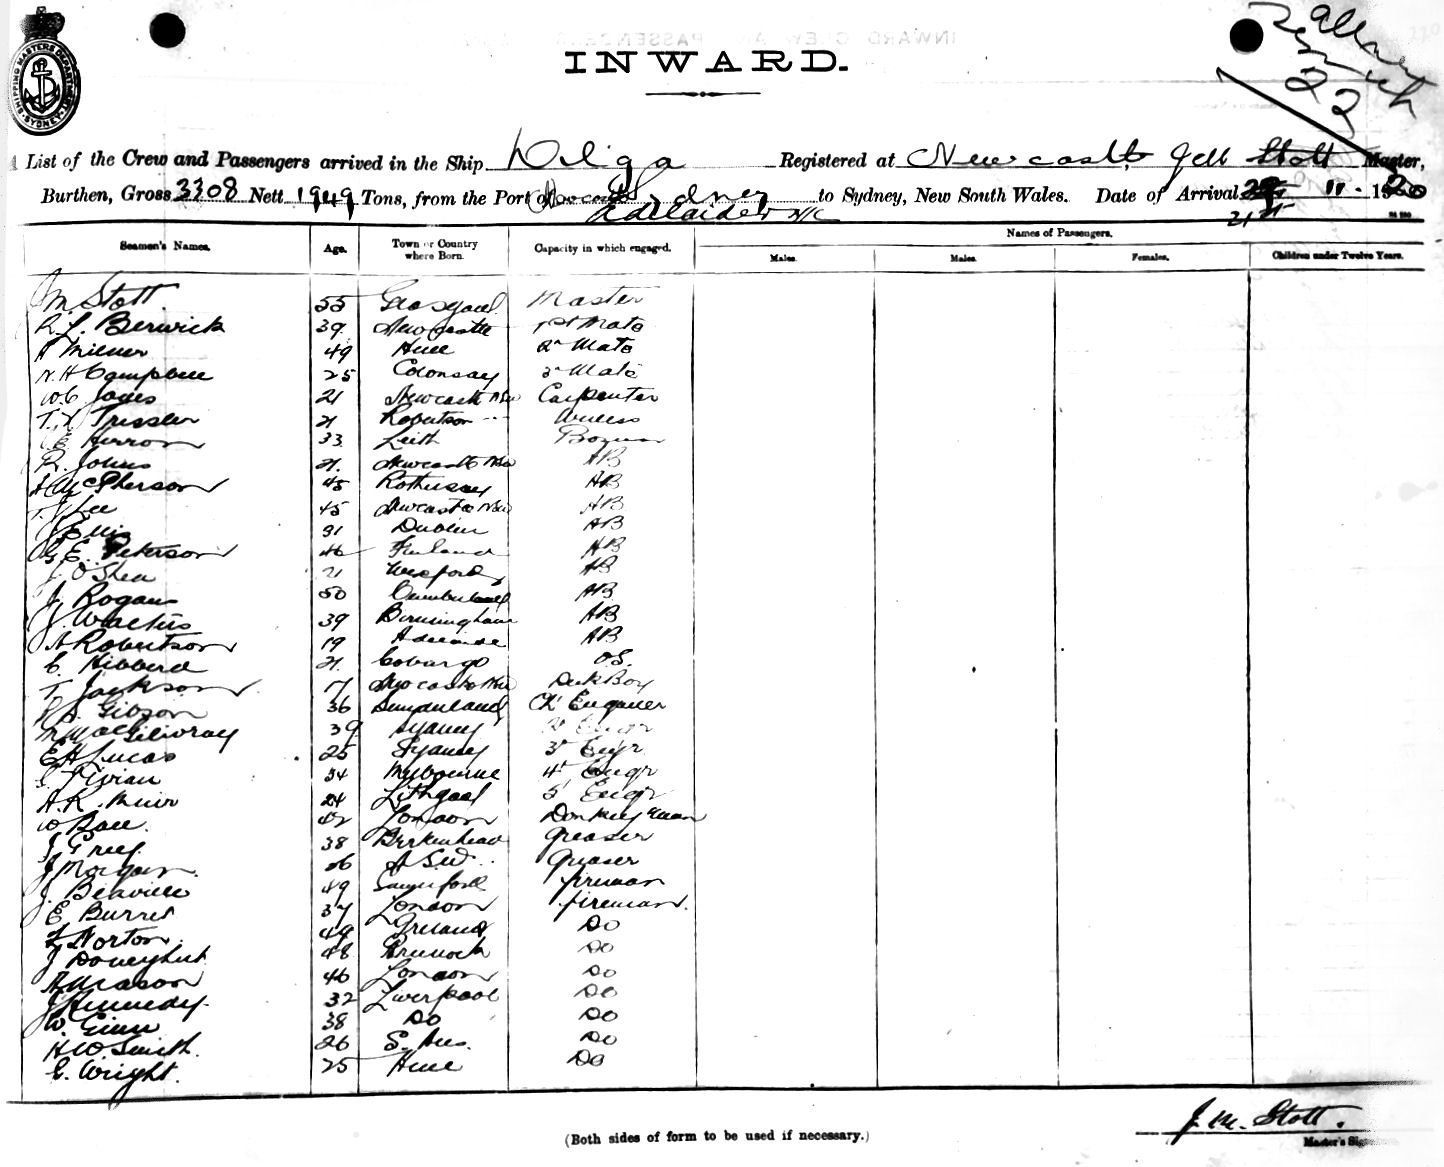 SHIPPING MASTERS DEPARTMENT SYDNEY
22
INWARD.
List of the Crew and Passengers arrived in the Ship Dilga Registered at Newcastle Stott Master,
Burthen, Gross 3308 Nett 1949 Tons, from the Port of Sydney to Sydney, New South Wales. Date of Arrival 11. 1920
Adelaide
21st
Seamen's Names. Age. Town or Country where Born. Capacity in which engaged. Names of Passengers.
Males. Males. Females. Children under Twelve Years.
J M Stott 55 Master
R. L. Berwick 39 Newcastle 1st Mate
A Milner 49 Hull 2nd Mate
N. H Campbell 25 Colonsay 3rd Mate
W C Jones 21 Newcastle NSW Carpenter
Tressler 21 Robertson Wireless
Herron 33 Leith Bosun
R. Johns 21. Newcastle NSW AB
McPherson 45 Rothesay AB
T. J Lee 45 Newcastle NSW AB
Ellis 31 Dublin AB
G. E. Peterson 46 Finland AB
J O'Shea 21 Wexford AB
J. Rogan 50 Cumberland AB
J Walters 39 Birmingham AB
A Robertson 19 Adelaide AB
C. Hibberd 21. Cobargo OS.
T. Jackson 17 Newcastle NSW Deck Boy
Gibson 36 Sunderland Ch Engineer
MacGilivray 39 Sydney 2nd Engr
E H Lucas 25 Sydney 3rd Engr
Vivian 34 Melbourne 4th Engr
A. R. Muir 24 Lithgow 5 Engr
W Ball. 42 London Donkeyman
J Greey 38 Birkenhead Greaser
J Morgan. 26 N SW Greaser
J. 49 fireman
E Burret 37 London fireman.
Norton 49 Do
J 48 Do
Mason 46 London Do
J Kennedy 32 Liverpool Do
W. Ginn 38 Do Do
H W. Smith. 26 S. Aus. Do
E. Wright. 25 Hull Do
J. M. Stott.
Master's
(Both sides of form to be used if necessary.)